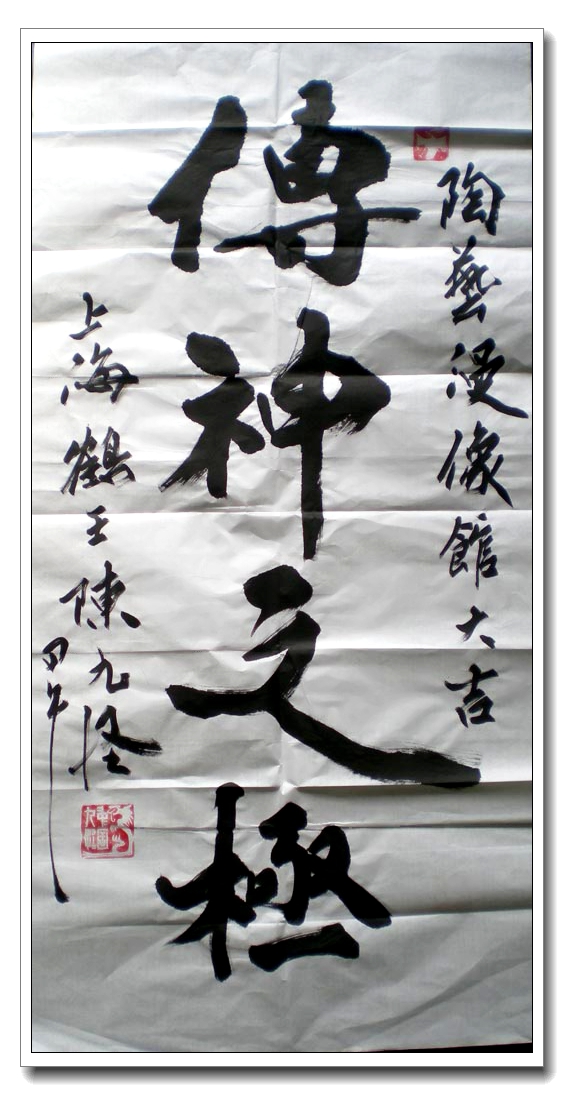 陶藝漫像館大吉
傳神之極
上海鶴王陳九怪